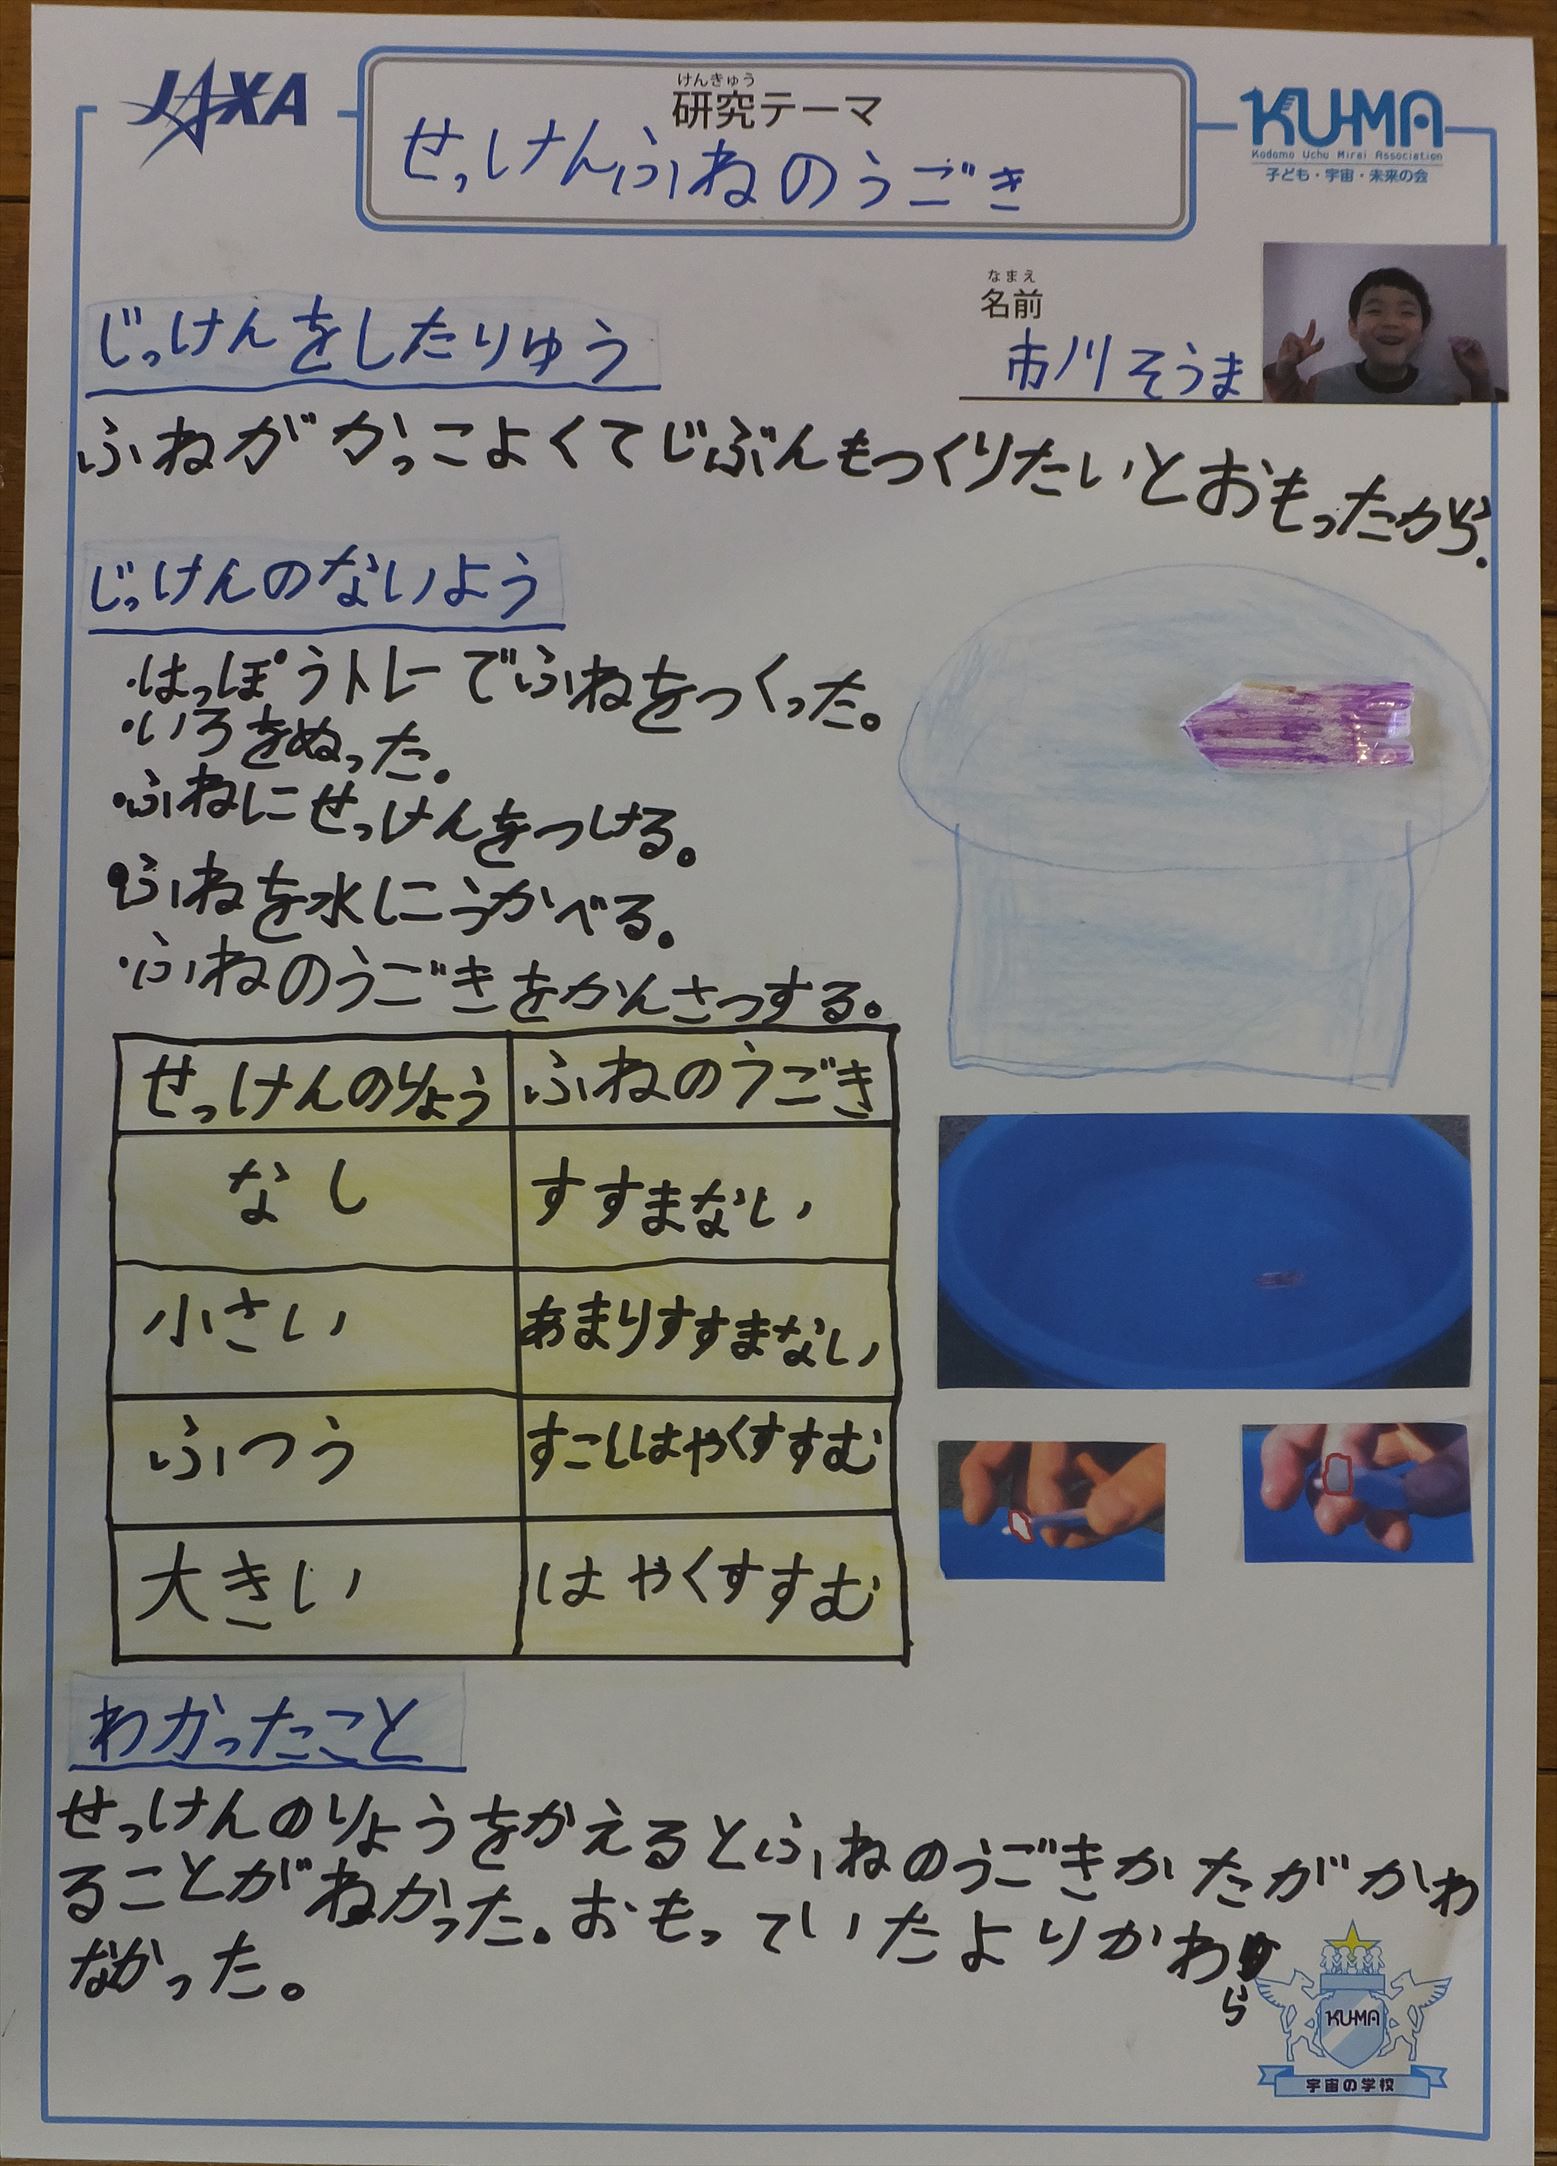 JAXA
けんきゅう
研究テーマ
せっけんふねのうごき
KU-MA
Kodomo Uchu Mirai Association
子ども・宇宙・未来の会
なまえ
名前
市川そうま
じっけんをしたりゆう
ふねがかっこよくてじぶんもつくりたいとおもったから.
じっけんのないよう
・はっぽうトレーでふねをつくった。
・いろをぬった。
・ふねにせっけんをつける。
・ふねを水にうかべる。
・ふねのうごきをかんさつする。
せっけんのりょう ふねのうごき
なし すすまない
小さい あまりすすまない
ふつう すこしはやくすすむ
大きい はやくすすむ
わかったこと
せっけんのりょうをかえるとふねのうごきかたがかわ
ることがわかった。おもっていたよりかわら
なかった。
KU-MA
宇宙の学校